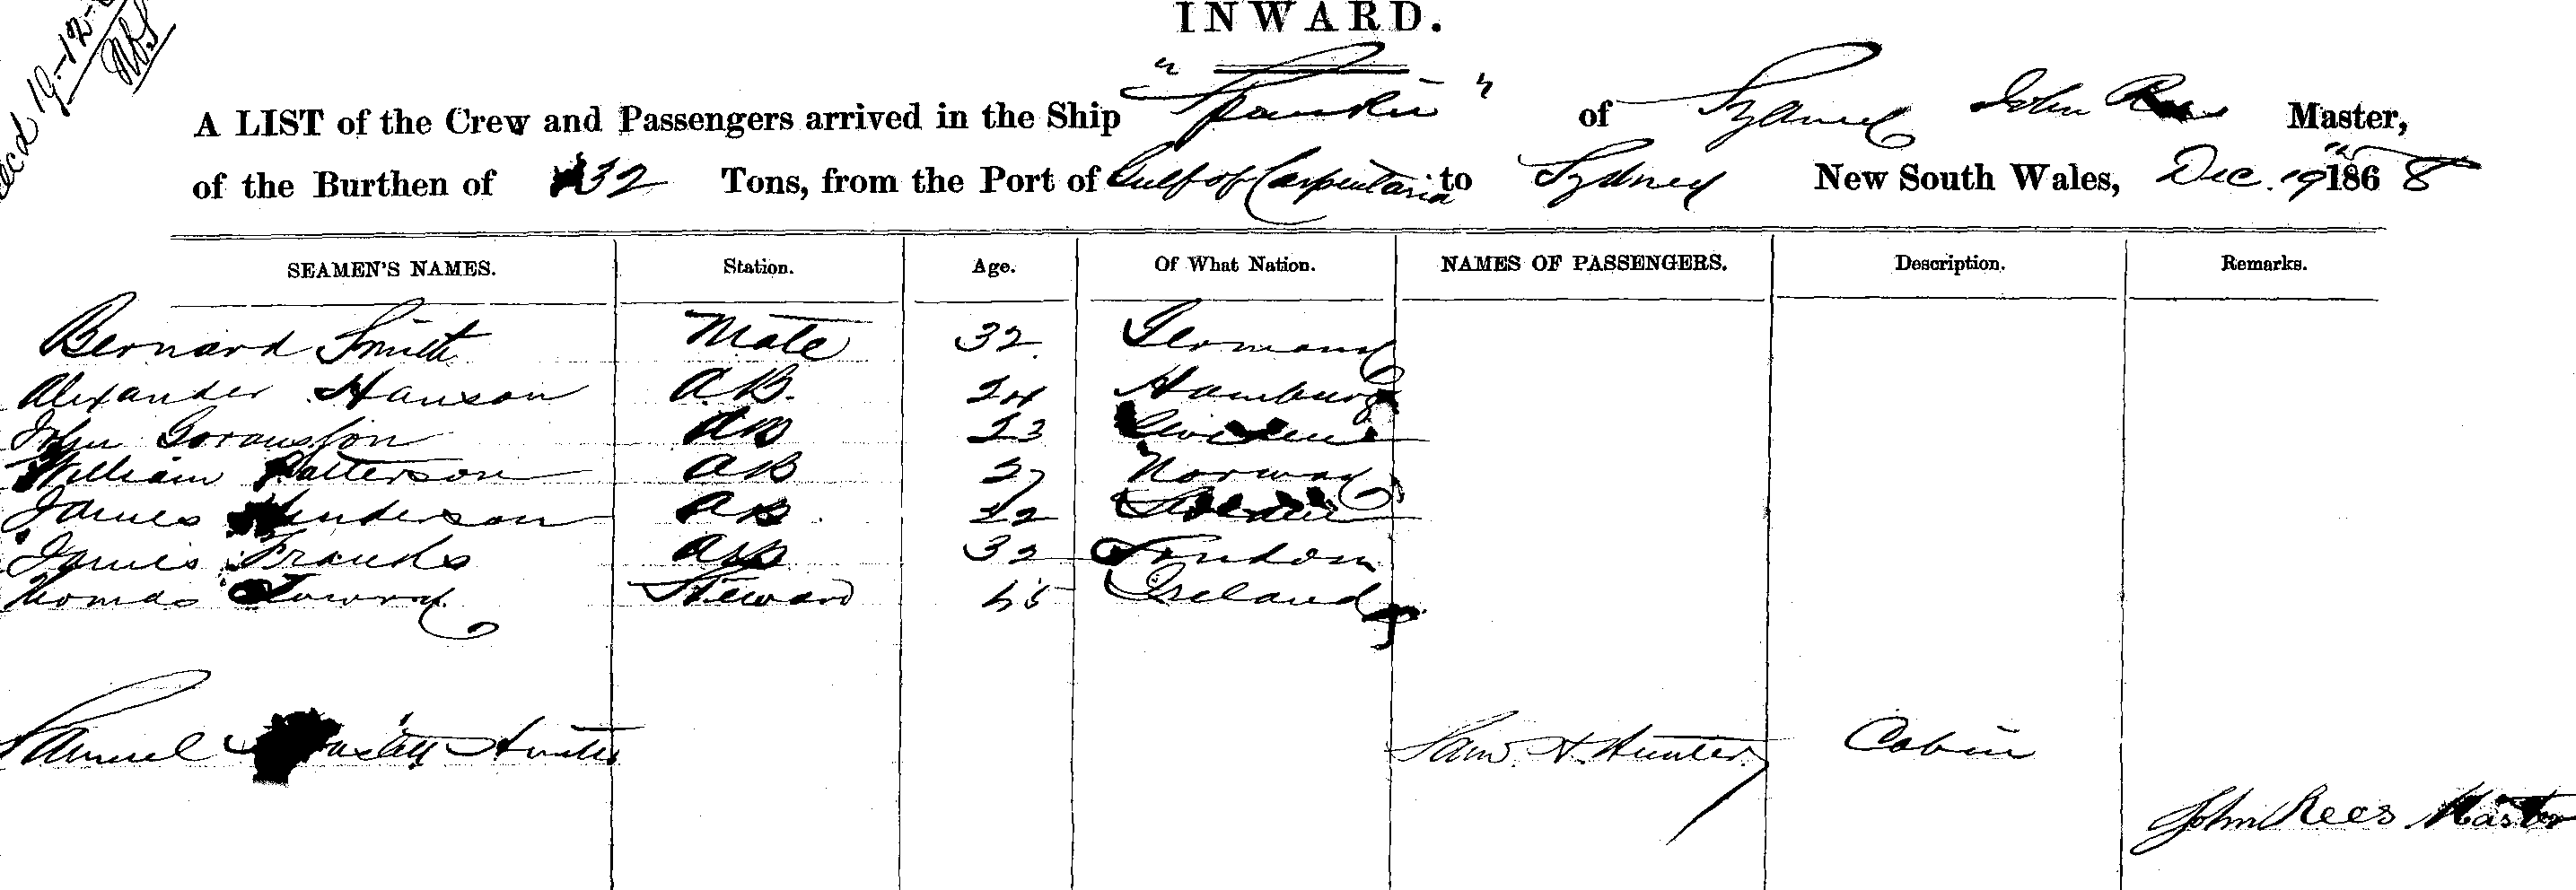 recd 19-12-
INWARD.
A LIST of the Crew and Passengers arrived in the Ship " " of Sydney John Rees Master,
of the Burthen of 132 Tons, from the Port of Gulf of Carpentaria to Sydney New South Wales, Dec. 19th 1868
SEAMEN'S NAMES. Station. Age. Of What Nation. NAMES OF PASSENGERS. Description. Remarks.
Bernard Smith Mate 32 Germany
Alexander Hanson A.B. 24 Hamburg
John AB 23 Sweden
William Patterson AB 27 Norway
James Anderson AB 22 Sweden
James Franks AB 32 London
Thomas Steward 45 Ireland
Samuel Hunter Sam. H. Hunter Cabin
John Rees Master